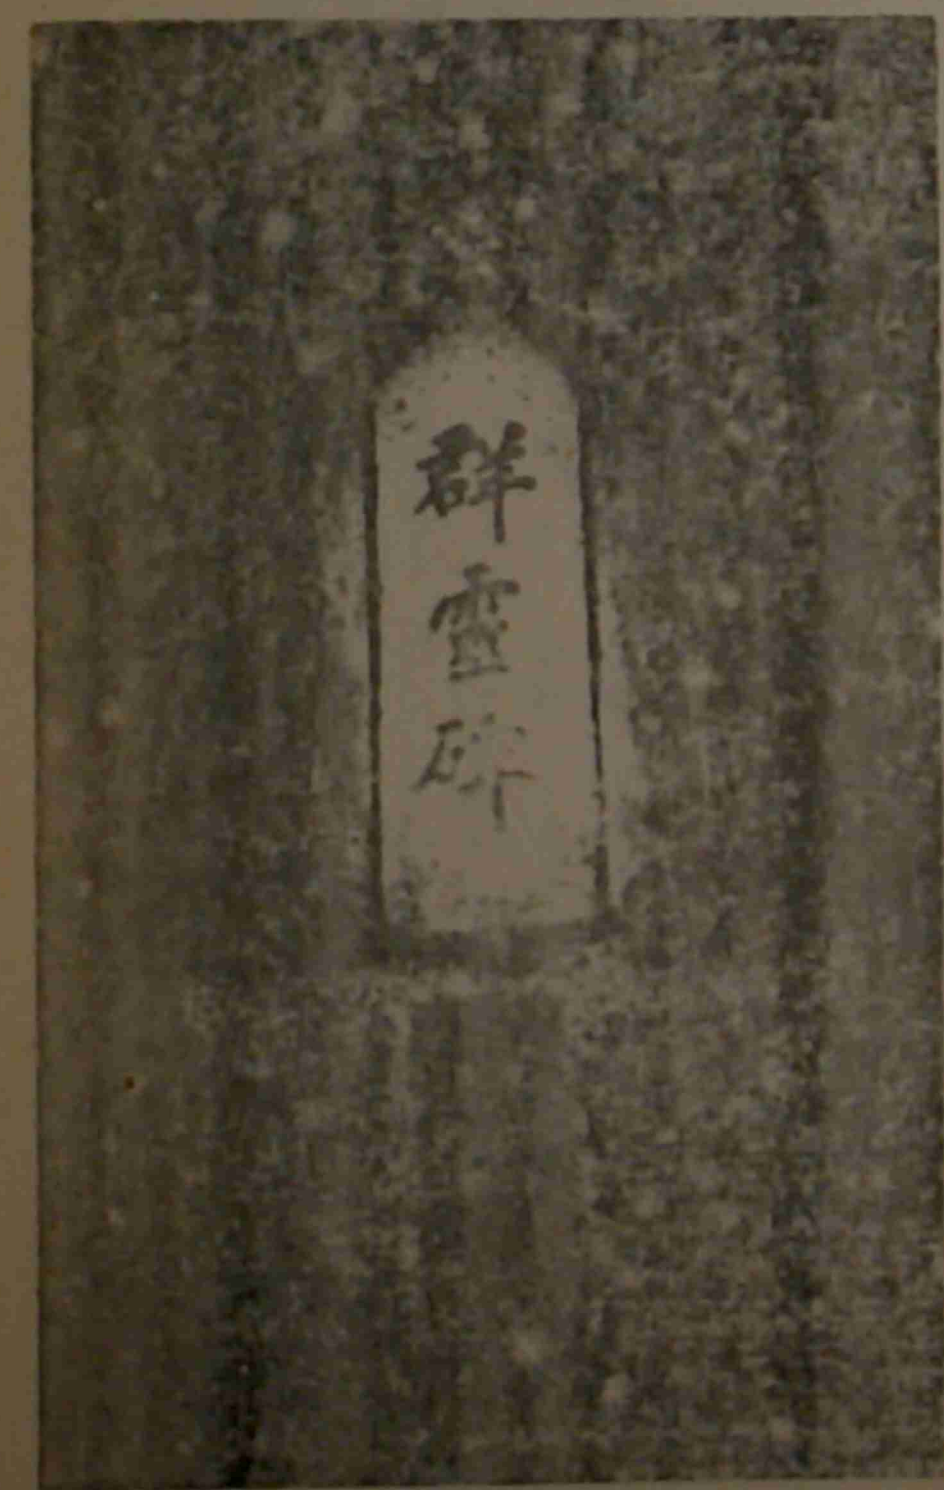 群靈碑